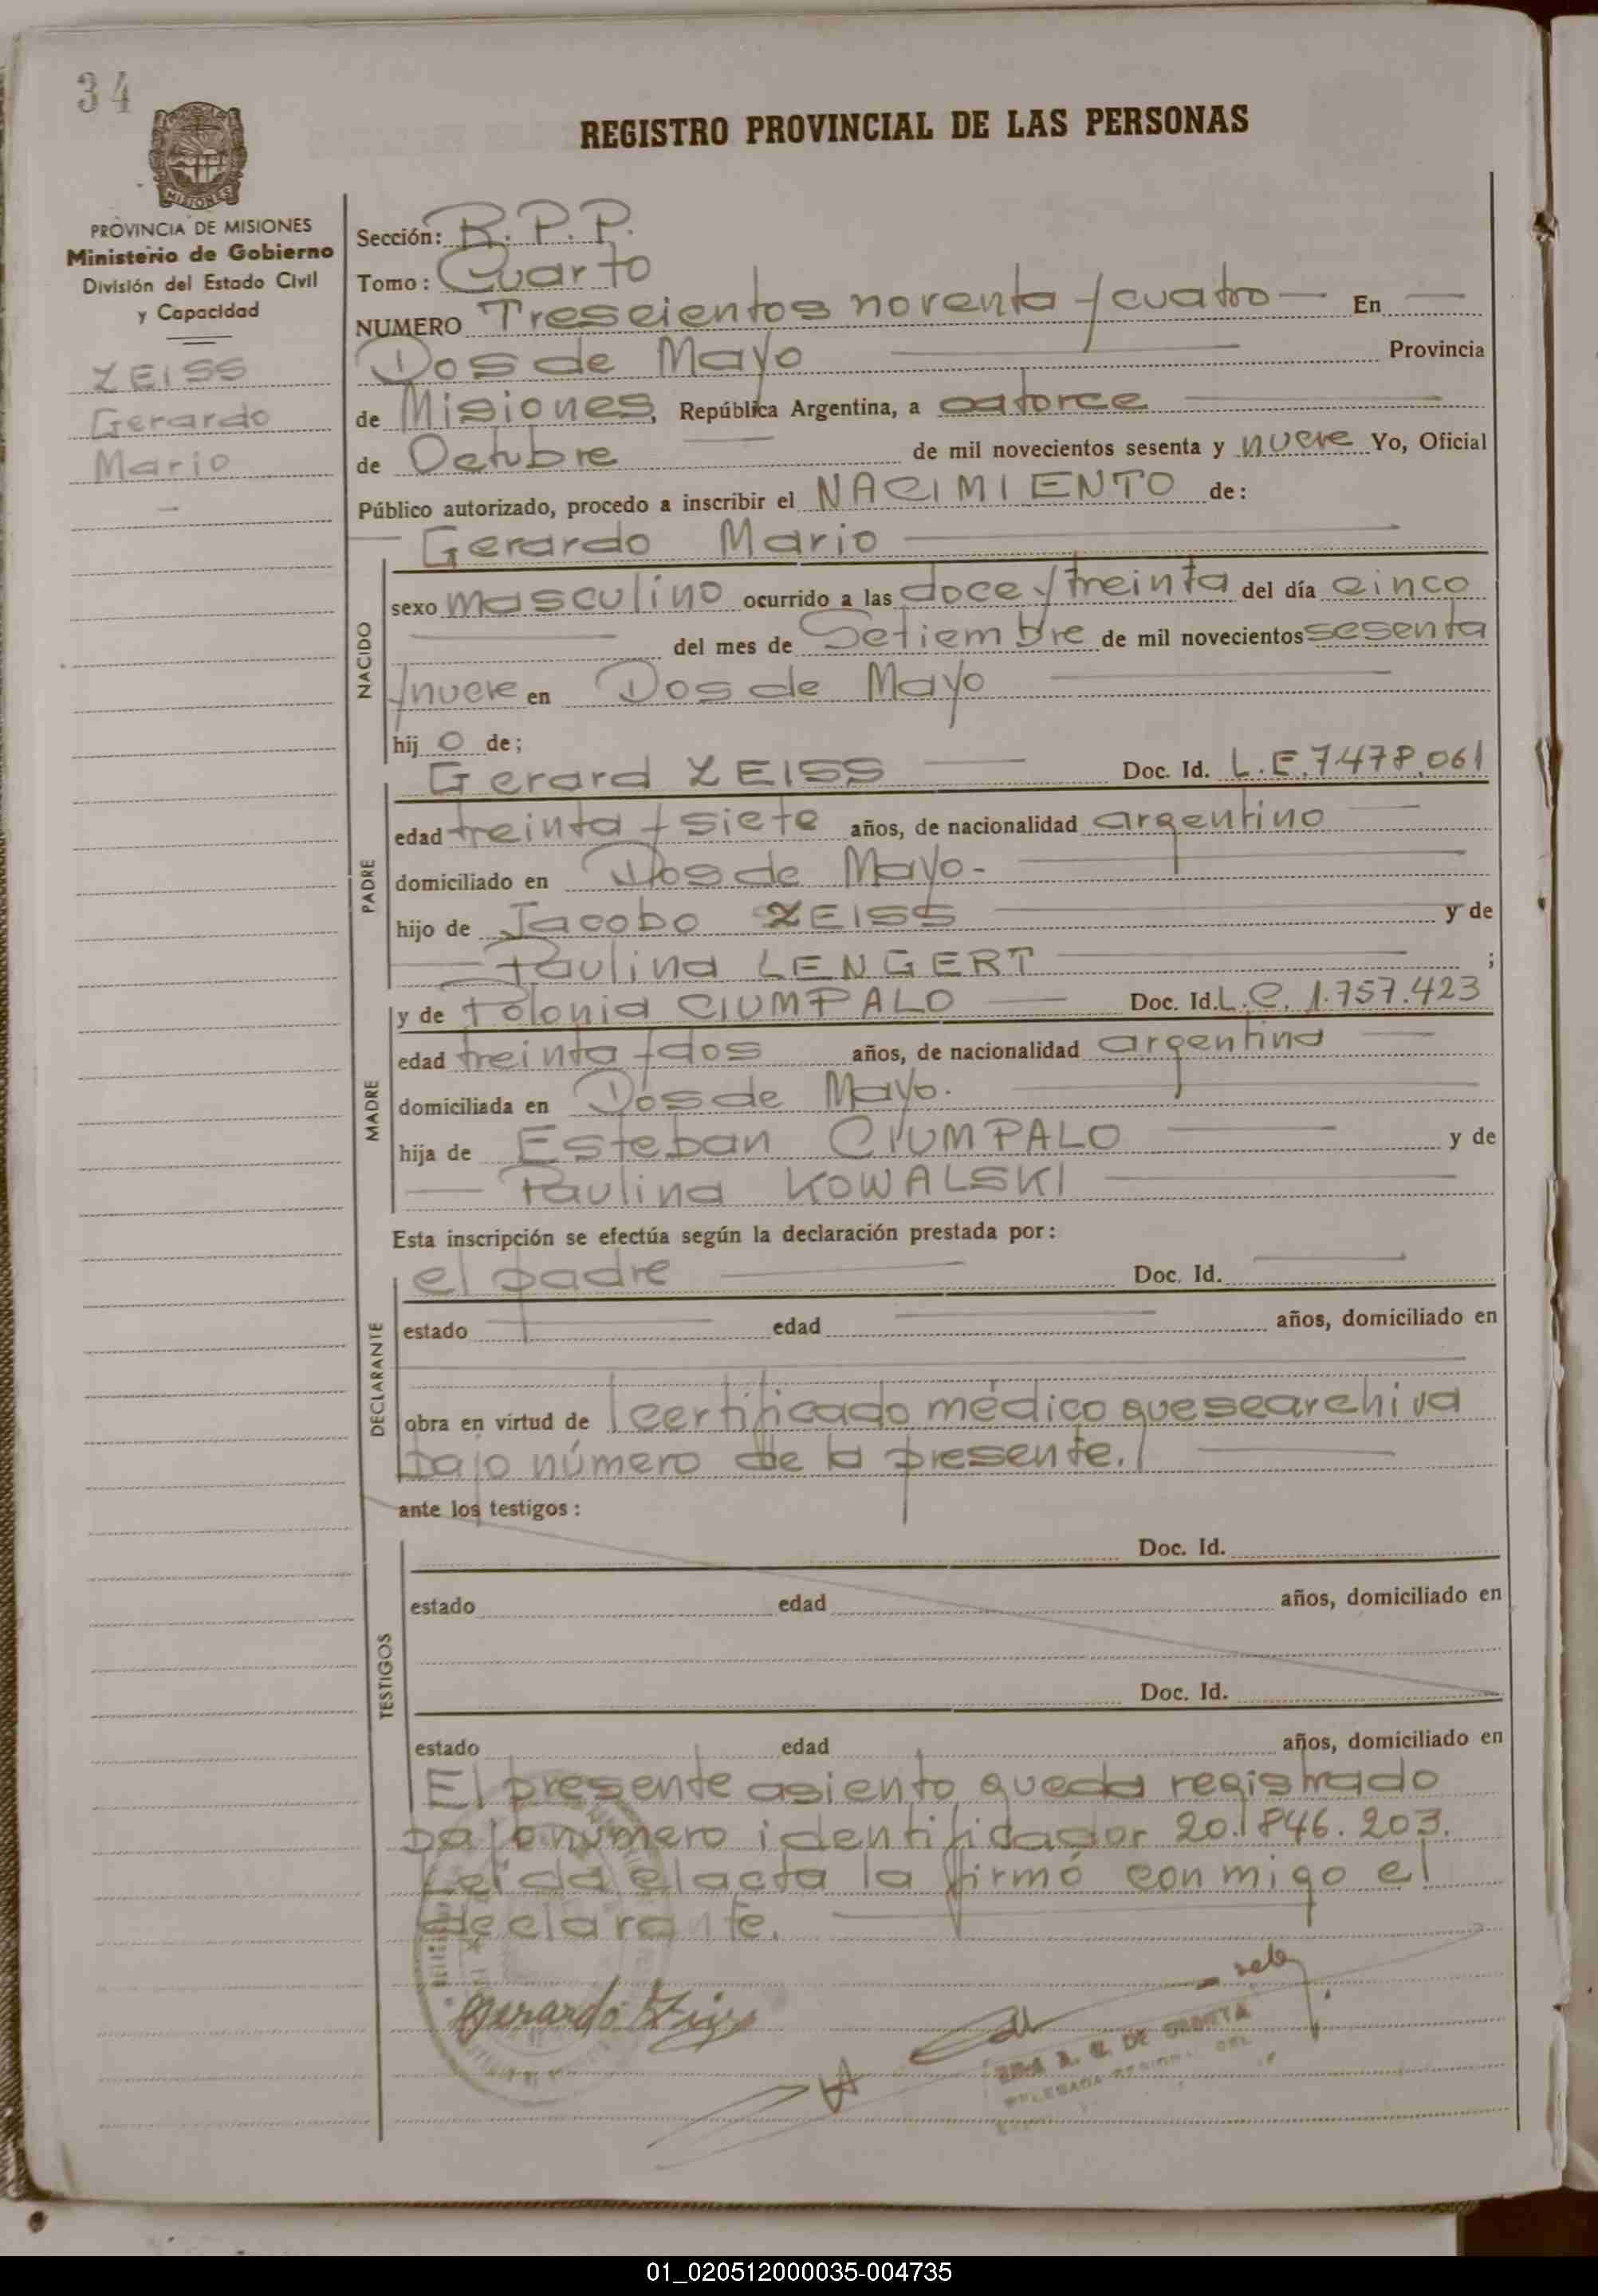 34
REGISTRO PROVINCIAL DE LAS PERSONAS
MISIONES
PROVINCIA DE MISIONES
Ministerio de Gobierno
División del Estado Civil
y Capacidad
ZEISS
Gerardo
Mario
Sección: R.P.P.
Tomo: Cuarto
NUMERO Trescientos noventa y cuatro — En —
Dos de Mayo — Provincia
de Misiones, República Argentina, a catorce —
de Octubre — de mil novecientos sesenta y nueve Yo, Oficial
Público autorizado, procedo a inscribir el NACIMIENTO de:
— Gerardo Mario —
NACIDO
sexo masculino ocurrido a las doce y treinta del día cinco
— del mes de Setiembre de mil novecientos sesenta
y nueve en Dos de Mayo —
hij o de;
PADRE
Gerard ZEISS — Doc. Id. L.E. 7.478.061
edad treinta y siete años, de nacionalidad argentino —
domiciliado en Dos de Mayo. —
hijo de Jacobo ZEISS — y de
— Paulina LENGERT — ;
MADRE
y de Polonia CIUMPALO — Doc. Id. L.C. 1.757.423
edad treinta y dos años, de nacionalidad argentina —
domiciliada en Dos de Mayo. —
hija de Esteban CIUMPALO — y de
— Paulina KOWALSKI —
Esta inscripción se efectúa según la declaración prestada por:
DECLARANTE
el padre — Doc. Id. —
estado — edad — años, domiciliado en
obra en virtud de /certificado médico que se archiva
bajo número de la presente./ —
ante los testigos:
TESTIGOS
Doc. Id.
estado edad años, domiciliado en
Doc. Id.
estado edad años, domiciliado en
El presente asiento queda registrado
bajo número identificador 20.846.203.
Leída el acta la firmó conmigo el
declarante. —
Gerardo
01_020512000035-004735